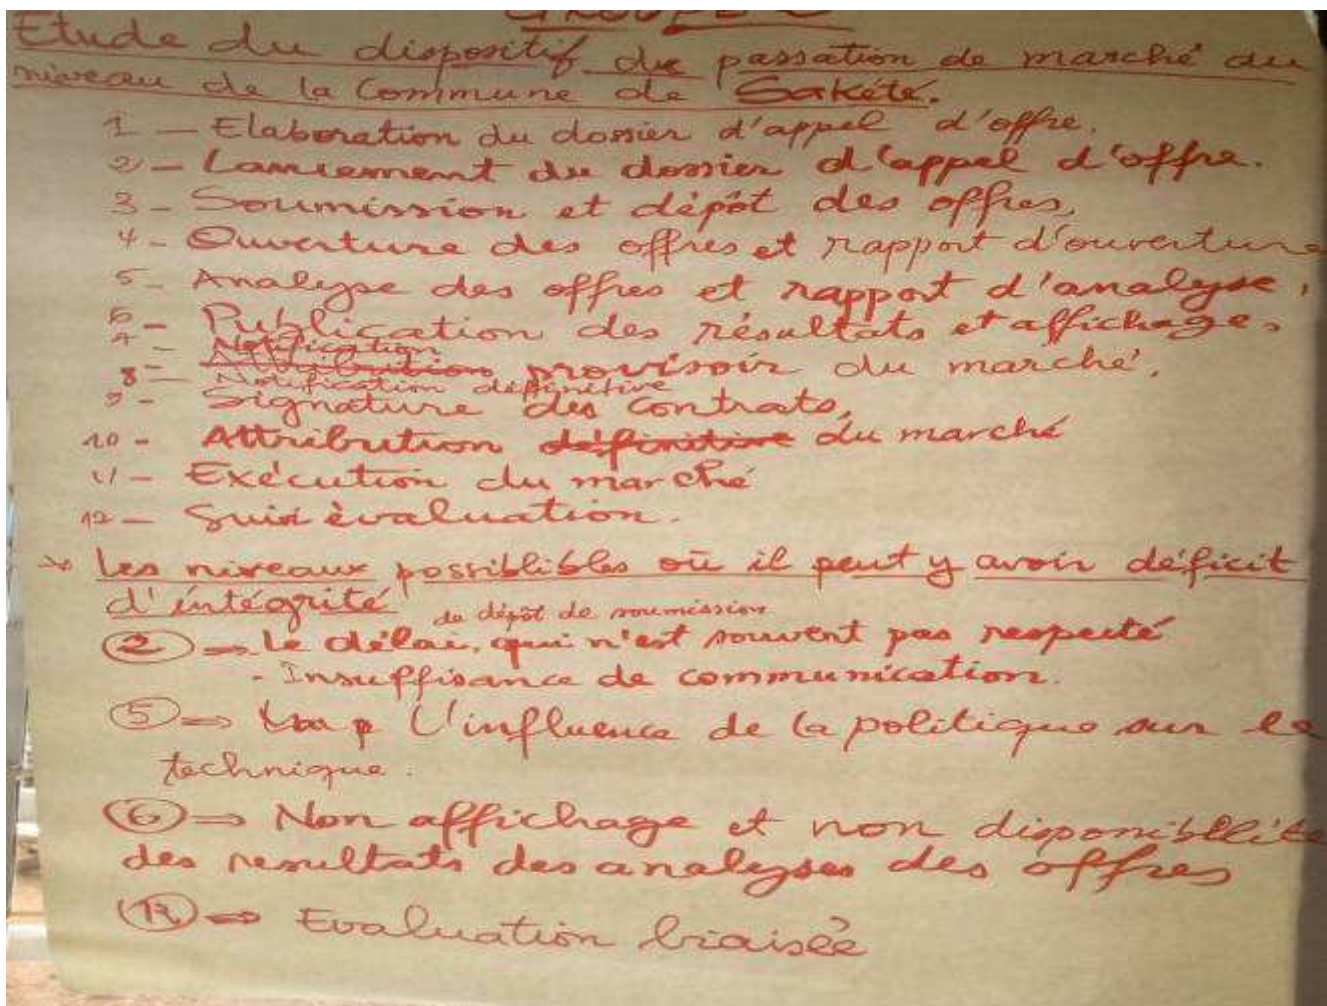 GROUPE
Etude du dispositif de passation de marché au
niveau de la Commune de Sakété.
1 — Elaboration du dossier d'appel d'offre.
2 — Lancement du dossier d'appel d'offre.
3 - Soumission et dépôt des offres,
4 - Ouverture des offres et rapport d'ouverture
5 - Analyse des offres et rapport d'analyse,
6 - Publication des résultats et affichages
7 - Notification
Attribution provisoir du marché,
8 — Notification définitive
9 - Signature des contrats,
10 - Attribution définitive du marché
11 - Exécution du marché
12 — Suivi èvaluation.
Les niveaux possiblibles où il peut y avoir déficit
d'intégrité
de dépôt de soumission
2 ⇒ le délai, qui n'est souvent pas respecté
- Insuffisance de communication.
5 ⇒ L'influence de la politique sur le
technique.
6 ⇒ Non affichage et non disponibilité
des resultats des analyses des offres
12 ⇒ Evaluation biaisée